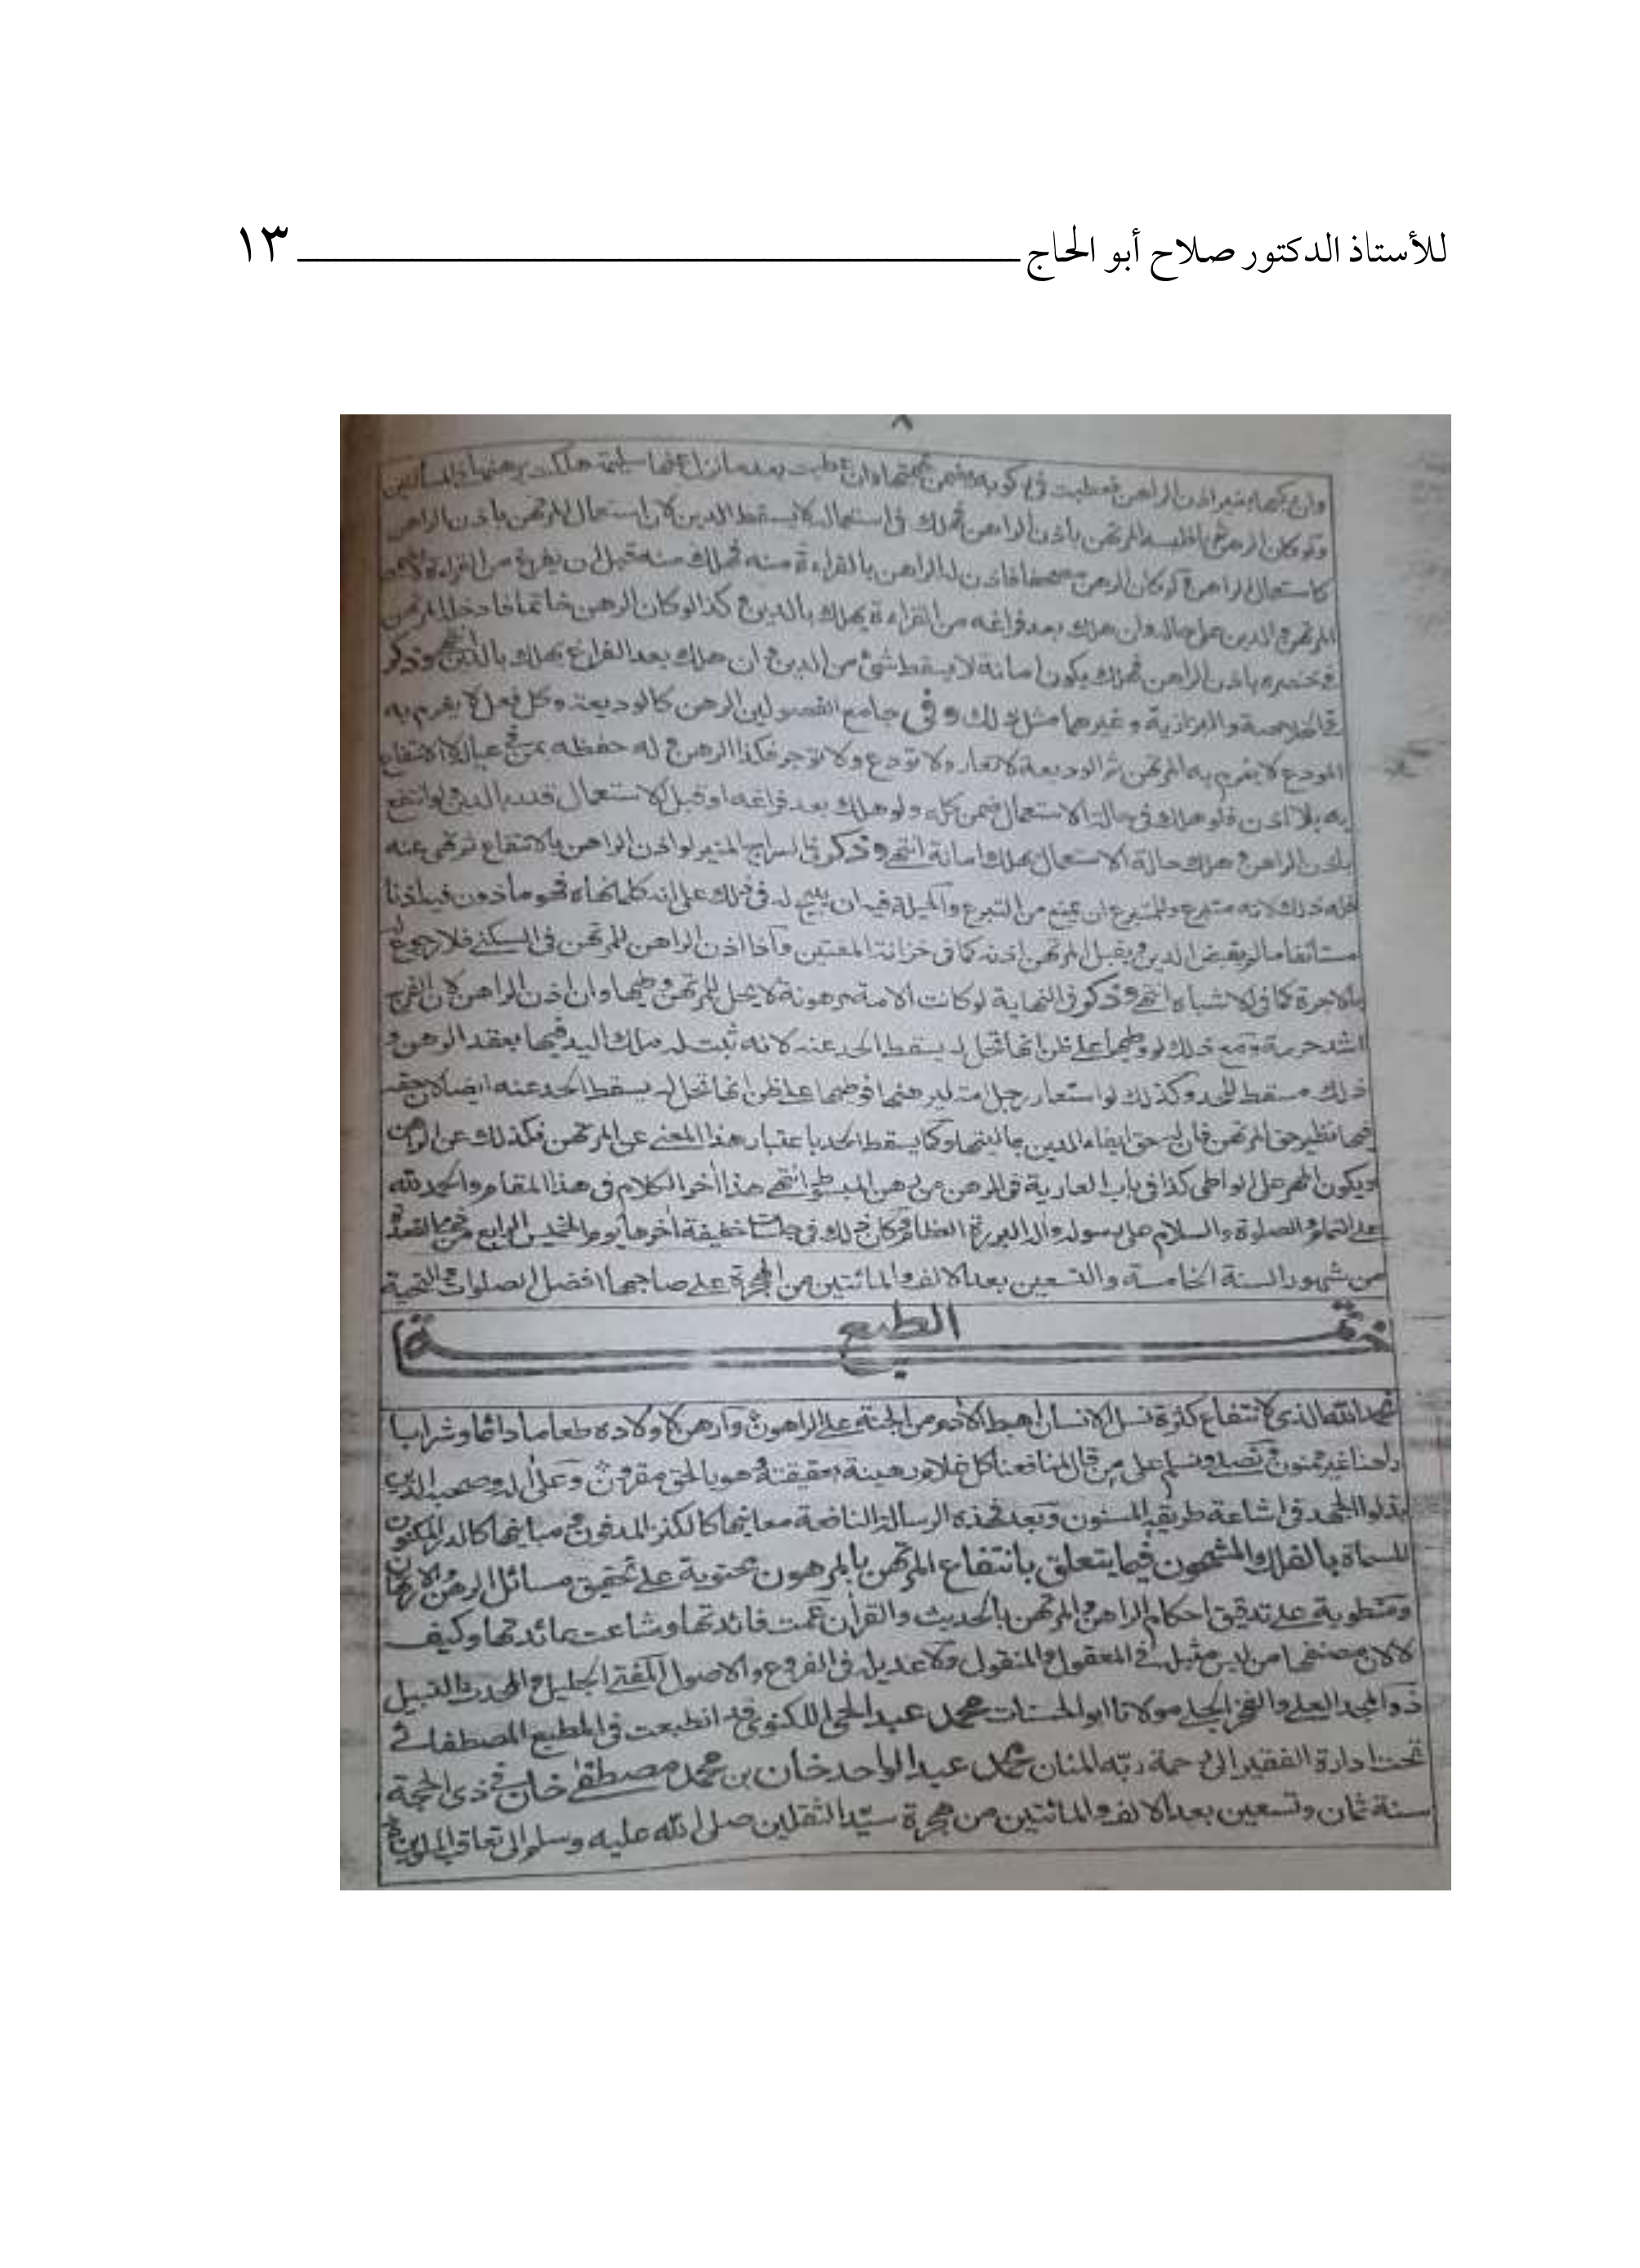 للأستاذ الدكتور صلاح أبو الحاج ١٣
٨
وان بغير اذن الراهن فعطبت في وان عطبت بعد ما نزل عنها سليمة هلكت
ولو كان الرهن المرتهن باذن الراهن فهلك في استعماله لا يسقط الدين لان استعمال المرتهن باذن الراهن
كاستعمال الراهن ولو كان الرهن مصحفا فاذن له الراهن بالقراءة منه فهلك منه قبل ان يفرغ من القراءة
المرتهن والدين على حاله وان هلك بعد فراغه من القراءة يهلك بالدين وكذا لو كان الرهن خاتما فادخله المرتهن
في خنصره باذن الراهن فهلك يكون امانة لا يسقط شئ من الدين وان هلك بعد الفراغ يهلك بالدين انتهى وذكر
في الخلاصة والبزازية وغيرهما مثل ذلك وفي جامع الفصولين الرهن كالوديعة وكل فعل لا يغرم به
المودع لا يغرم به المرتهن ثم الوديعة لا تعار ولا تودع ولا توجر فكذا الرهن وله حفظه الانتفاع
به بلا اذن فلو هلك في حالة الاستعمال ضمن كله ولو هلك بعد فراغه او قبل الاستعمال ولو انتفع
باذن الراهن وهلك حالة الاستعمال يهلك امانة انتهى وذكر في السراج المنير لو اذن الراهن بالانتفاع ثم نهى عنه
فله ذلك لانه متبرع وللمتبرع ان يمتنع من التبرع والحيلة فيه ان يبيح له في ذلك على انه كلما نهاه فهو ماذون فيه اذنا
مستأنفا ما لم يقبض الدين ويقبل المرتهن اذنه كما في خزانة المفتين واذا اذن الراهن للمرتهن في السكنى فلا رجوع له
بالاجرة كما في الاشباه انتهى وذكر في النهاية لو كانت الامة مرهونة لا يحل للمرتهن وطيها وان اذن الراهن لان الفرج
اشد حرمة ومع ذلك لو وطيها على ظن انها تحل له يسقط الحد عنه لانه ثبت له ملك اليد فيها بعقد الرهن و
ذلك مسقط للحد وكذلك لو استعار رجل امة ليرهنها فوطيها على ظن انها تحل له يسقط الحد عنه ايضا لان حقه
فيها نظير حق المرتهن فان له حق ايفاء الدين بماليتها وكما يسقط الحد باعتبار هذا المعنى عن المرتهن فكذلك عن الراهن
ويكون المهر على الواطى كذا في باب العارية في الرهن من رهن المبسوط انتهى هذا آخر الكلام في هذا المقام والحمد لله
على التمام والصلوة والسلام على رسوله وآله البررة العظام وكان ذلك في جلسات خفيفة آخرها يوم الخميس الرابع من ذي القعدة
من شهور السنة الخامسة والتسعين بعد الالف والمائتين من الهجرة على صاحبها افضل الصلوات والتحية
خاتمة الطبع
نحمد الله الذي لانتفاع كثرة نسل الانسان اهبط الآدم من الجنة على الراهون وارهن لاولاده طعاما دائما وشرابا
راهنا غير ممنون ونصلي ونسلم على من قال لمنافعنا كل غلام رهينة بعقيقته هو بالحق مقرون وعلى آله وصحبه الذين
بذلوا الجهد في اشاعة طريقه المسنون وبعد فهذه الرسالة النافعة معانيها كالكنز المدفون مبانيها كالدر المكنون
المسماة بالفلك المشحون فيما يتعلق بانتفاع المرتهن بالمرهون محتوية على تحقيق مسائل الرهن والارتهان
ومنطوية على تدقيق احكام الراهن والمرتهن بالحديث والقرآن عمت فائدتها وشاعت عائدتها وكيف
لا لان مصنفها من ليس مثيله في المعقول والمنقول ولا عديله في الفروع والاصول المفتي الجليل والمحدث النبيل
ذو المجد العلي والفخر الجلي مولانا ابو الحسنات محمد عبد الحي اللكنوي قد انطبعت في المطبع المصطفائي
تحت ادارة الفقير الى رحمة ربه المنان محمد عبد الواحد خان بن محمد مصطفى خان في ذي الحجة
سنة ثمان وتسعين بعد الالف والمائتين من هجرة سيد الثقلين صلى الله عليه وسلم الى تعاقب الملوين